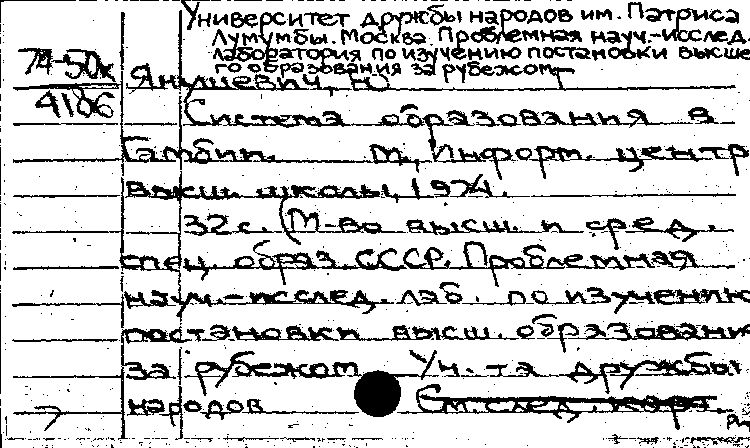 Университет дружбы народов им. Патриса
Лумумбы. Москва. Проблемная науч.-исслед.
лаборатория по изучению постановки высше-
го образования за рубежом.
74-50к
Янушевич, Ю
4186
Система образования в
Гамбии. М., Информ. центр
высш. школы, 1974.
32 с. (М-во высш. и сред.
спец. образ. СССР. Проблемная
науч.-исслед. лаб. по изучению
постановки высш. образования
за рубежом Ун.-та дружбы
народов См. след. карт.